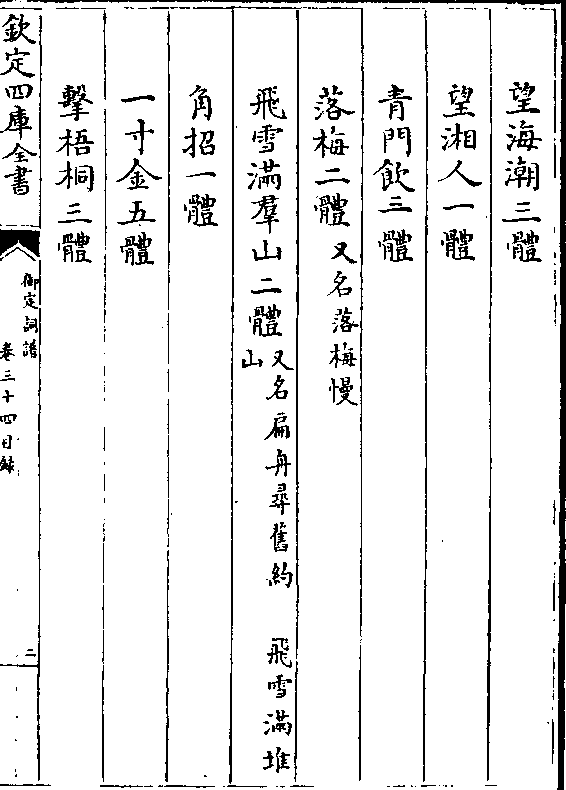 望海潮三體
望湘人一體
青門飲三體
落梅二體 又名落梅慢
飛雪滿羣山二體 又名扁舟尋舊約 飛雪滿堆山
角招一體
一寸金五體
擊梧桐三體
欽定四庫全書
御定詞譜
卷三十四目錄
二